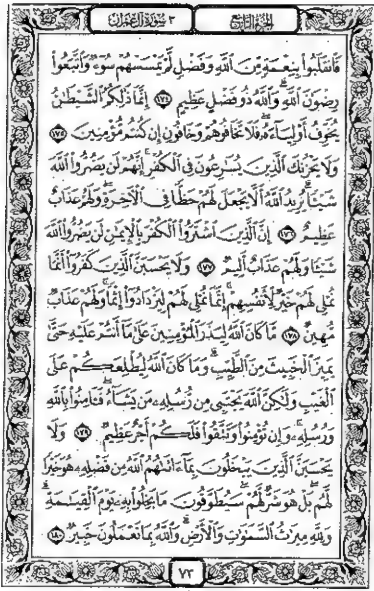 الجزء الرابع ٣ سورة آل عمران
فَانقَلَبُوا۟ بِنِعْمَةٍ مِّنَ ٱللَّهِ وَفَضْلٍ لَّمْ يَمْسَسْهُمْ سُوٓءٌ وَٱتَّبَعُوا۟
رِضْوَٰنَ ٱللَّهِ ۗ وَٱللَّهُ ذُو فَضْلٍ عَظِيمٍ ١٧٤ إِنَّمَا ذَٰلِكُمُ ٱلشَّيْطَٰنُ
يُخَوِّفُ أَوْلِيَآءَهُۥ فَلَا تَخَافُوهُمْ وَخَافُونِ إِن كُنتُم مُّؤْمِنِينَ ١٧٥
وَلَا يَحْزُنكَ ٱلَّذِينَ يُسَٰرِعُونَ فِى ٱلْكُفْرِ ۚ إِنَّهُمْ لَن يَضُرُّوا۟ ٱللَّهَ
شَيْـًٔا ۗ يُرِيدُ ٱللَّهُ أَلَّا يَجْعَلَ لَهُمْ حَظًّا فِى ٱلْءَاخِرَةِ ۖ وَلَهُمْ عَذَابٌ
عَظِيمٌ ١٧٦ إِنَّ ٱلَّذِينَ ٱشْتَرَوُا۟ ٱلْكُفْرَ بِٱلْإِيمَٰنِ لَن يَضُرُّوا۟ ٱللَّهَ
شَيْـًٔا وَلَهُمْ عَذَابٌ أَلِيمٌ ١٧٧ وَلَا يَحْسَبَنَّ ٱلَّذِينَ كَفَرُوٓا۟ أَنَّمَا
نُمْلِى لَهُمْ خَيْرٌ لِّأَنفُسِهِمْ ۚ إِنَّمَا نُمْلِى لَهُمْ لِيَزْدَادُوٓا۟ إِثْمًا ۚ وَلَهُمْ عَذَابٌ
مُّهِينٌ ١٧٨ مَّا كَانَ ٱللَّهُ لِيَذَرَ ٱلْمُؤْمِنِينَ عَلَىٰ مَآ أَنتُمْ عَلَيْهِ حَتَّىٰ
يَمِيزَ ٱلْخَبِيثَ مِنَ ٱلطَّيِّبِ ۗ وَمَا كَانَ ٱللَّهُ لِيُطْلِعَكُمْ عَلَى
ٱلْغَيْبِ وَلَٰكِنَّ ٱللَّهَ يَجْتَبِى مِن رُّسُلِهِۦ مَن يَشَآءُ ۖ فَـَٔامِنُوا۟ بِٱللَّهِ
وَرُسُلِهِۦ ۚ وَإِن تُؤْمِنُوا۟ وَتَتَّقُوا۟ فَلَكُمْ أَجْرٌ عَظِيمٌ ١٧٩ وَلَا
يَحْسَبَنَّ ٱلَّذِينَ يَبْخَلُونَ بِمَآ ءَاتَىٰهُمُ ٱللَّهُ مِن فَضْلِهِۦ هُوَ خَيْرًا
لَّهُم ۖ بَلْ هُوَ شَرٌّ لَّهُمْ ۖ سَيُطَوَّقُونَ مَا بَخِلُوا۟ بِهِۦ يَوْمَ ٱلْقِيَٰمَةِ ۗ
وَلِلَّهِ مِيرَٰثُ ٱلسَّمَٰوَٰتِ وَٱلْأَرْضِ ۗ وَٱللَّهُ بِمَا تَعْمَلُونَ خَبِيرٌ ١٨٠
٧٣